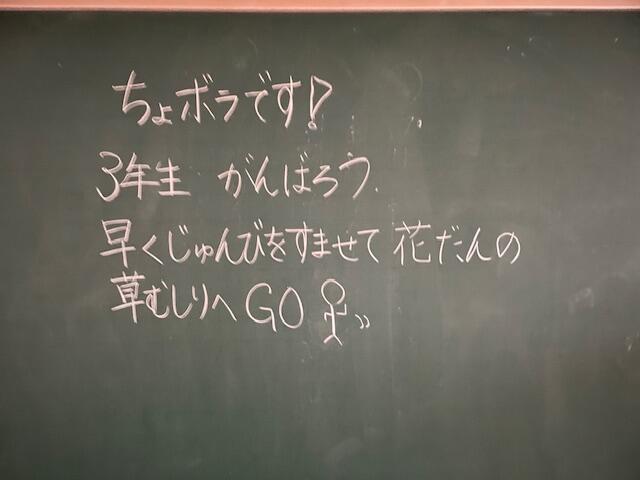 ちょボラです!
3年生 がんばろう.
早くじゅんびをすませて 花だんの
草むしりへ GO